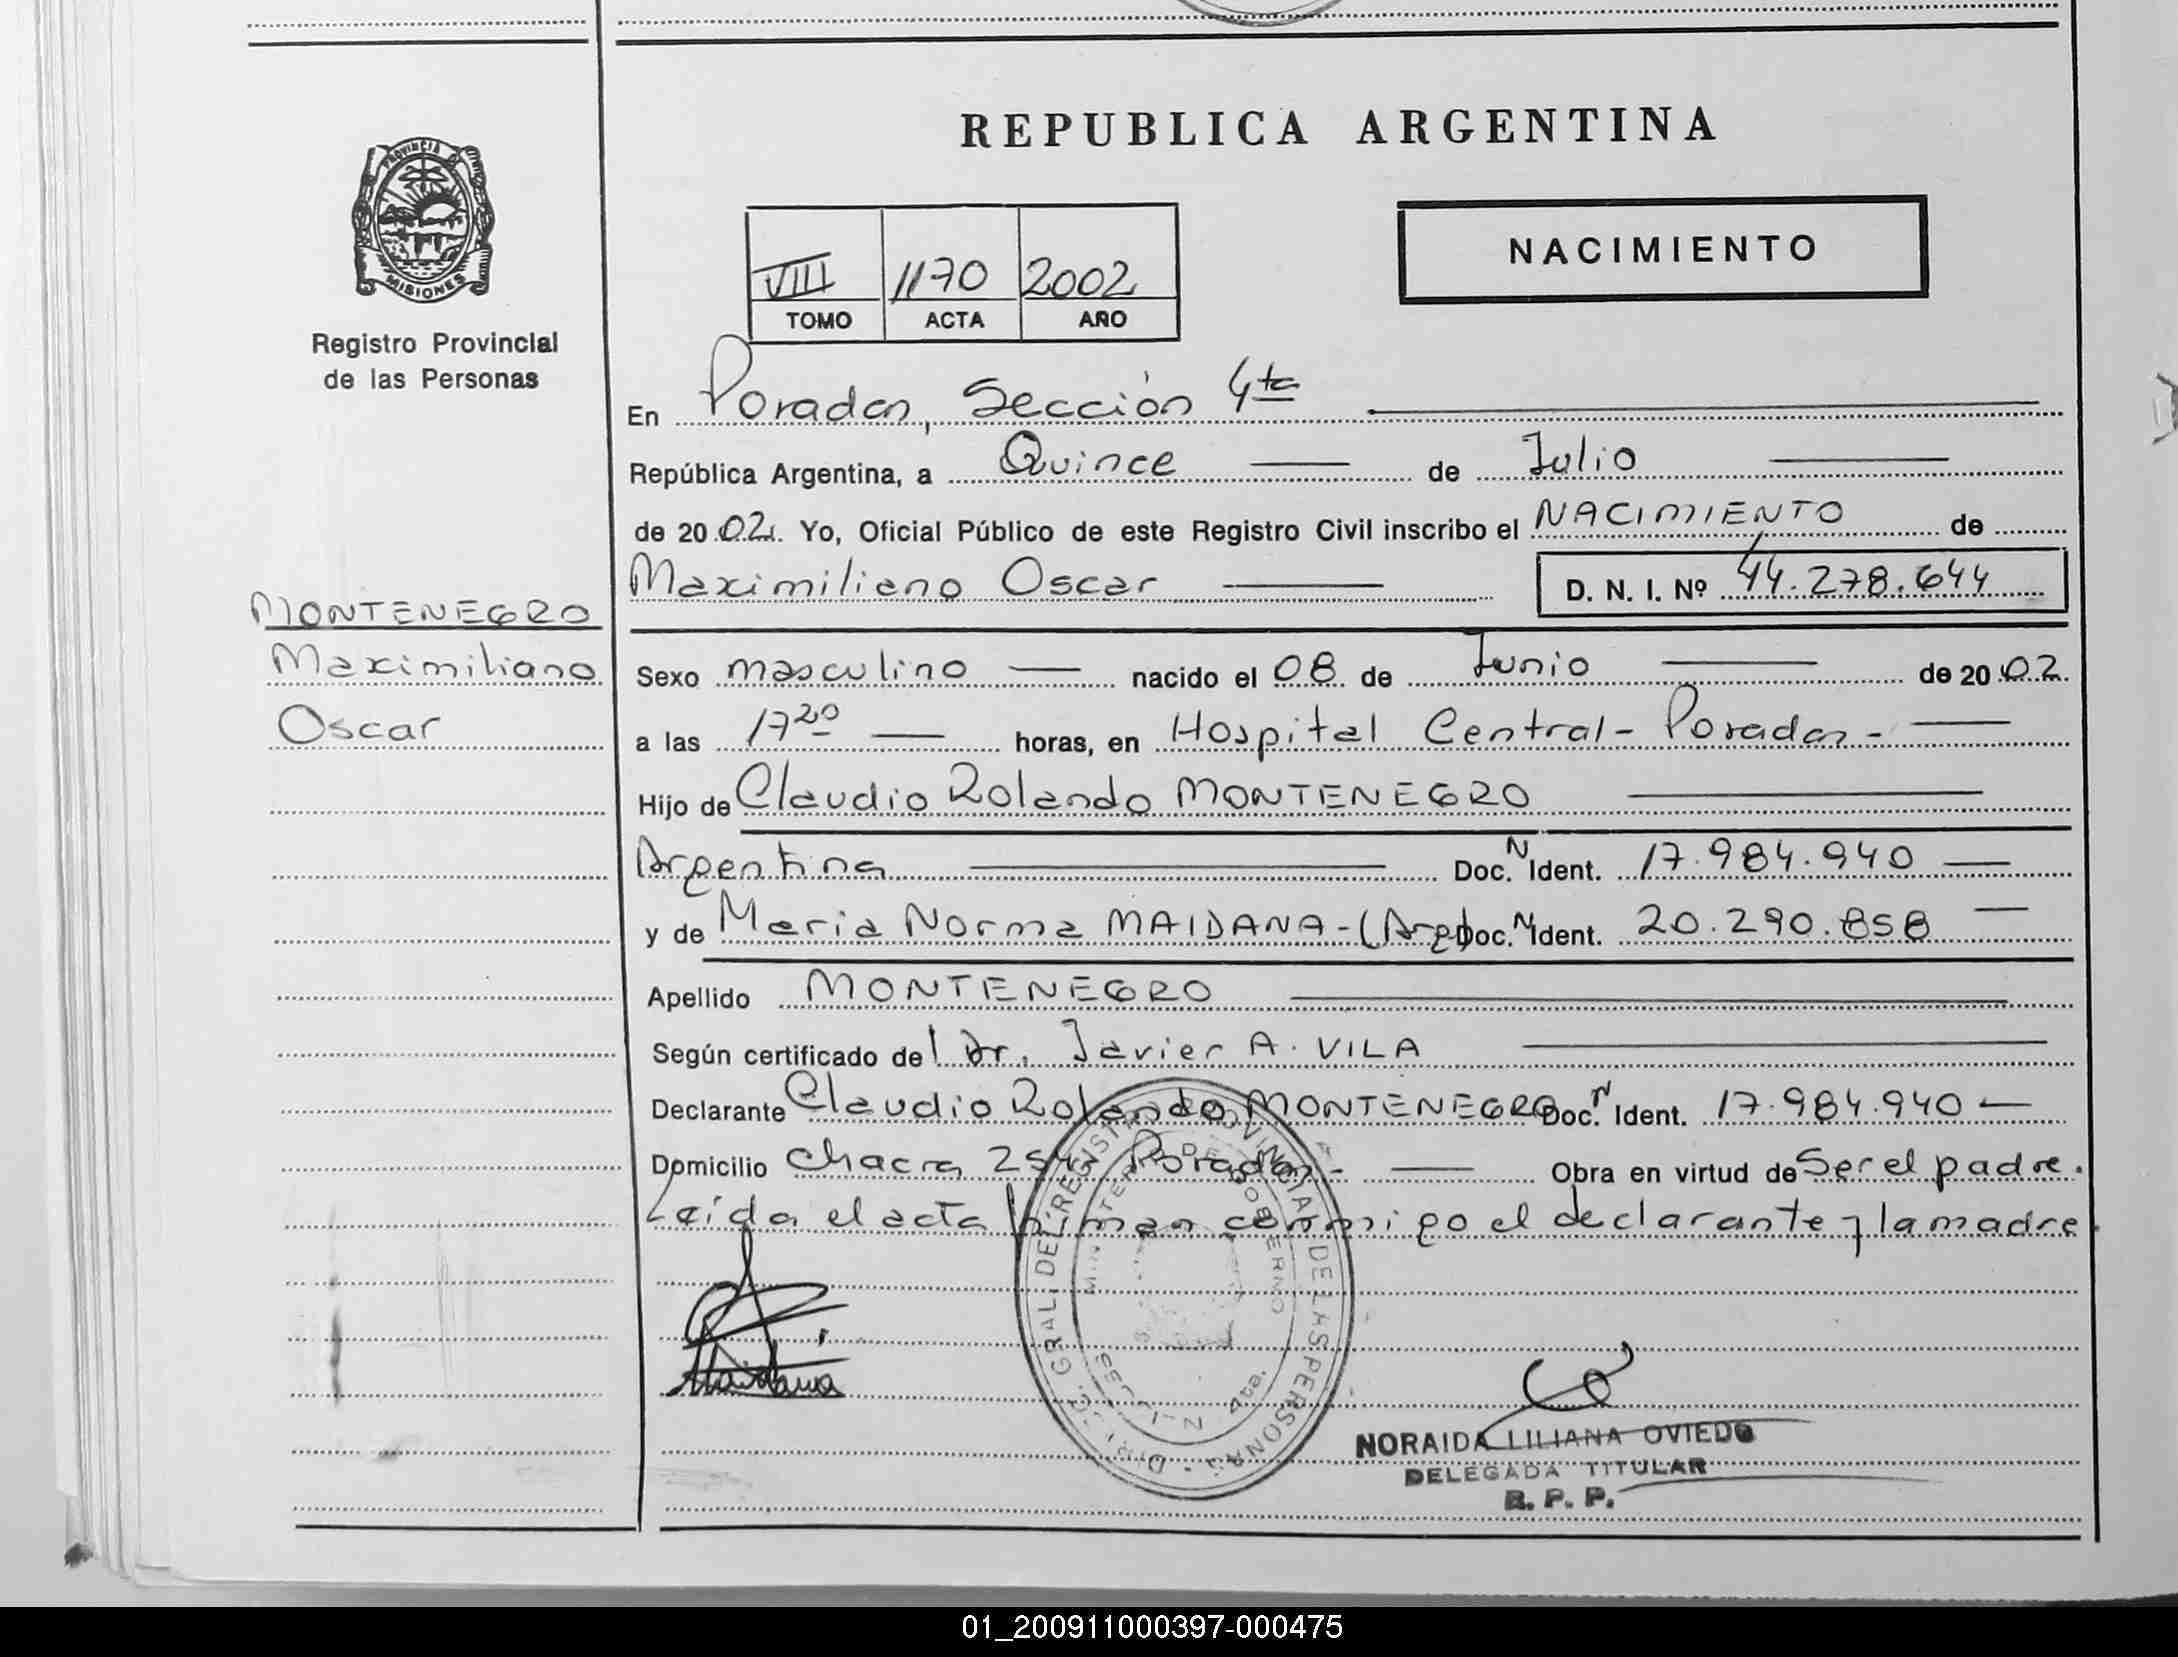 REPUBLICA ARGENTINA
PROVINCIA DE
MISIONES
Registro Provincial
de las Personas
VIII 1170 2002
TOMO ACTA AÑO
NACIMIENTO
En Posadas, Sección 4ta
República Argentina, a Quince de Julio
de 2002. Yo, Oficial Público de este Registro Civil inscribo el NACIMIENTO de
Maximiliano Oscar D. N. I. Nº 44.278.644
MONTENEGRO
Maximiliano
Oscar
Sexo masculino nacido el 08 de Junio de 2002
a las 17 20 horas, en Hospital Central - Posadas -
Hijo de Claudio Rolando MONTENEGRO
Argentina Doc. N Ident. 17.984.940
y de Maria Norma MAIDANA - (Arg) Doc. N Ident. 20.290.858
Apellido MONTENEGRO
Según certificado del Dr. Javier A. VILA
Declarante Claudio Rolando MONTENEGRO Doc. N Ident. 17.984.940 -
Domicilio Chacra 254 Posadas - Obra en virtud de Ser el padre.
Leída el acta firman conmigo el declarante y la madre.
DIRECC. GRAL. DEL REGISTRO PROVINCIAL DE LAS PERSONAS
MINISTERIO DE GOBIERNO
4ta.
Maidana
NORAIDA LILIANA OVIEDO
DELEGADA TITULAR
R. P. P.
01_200911000397-000475